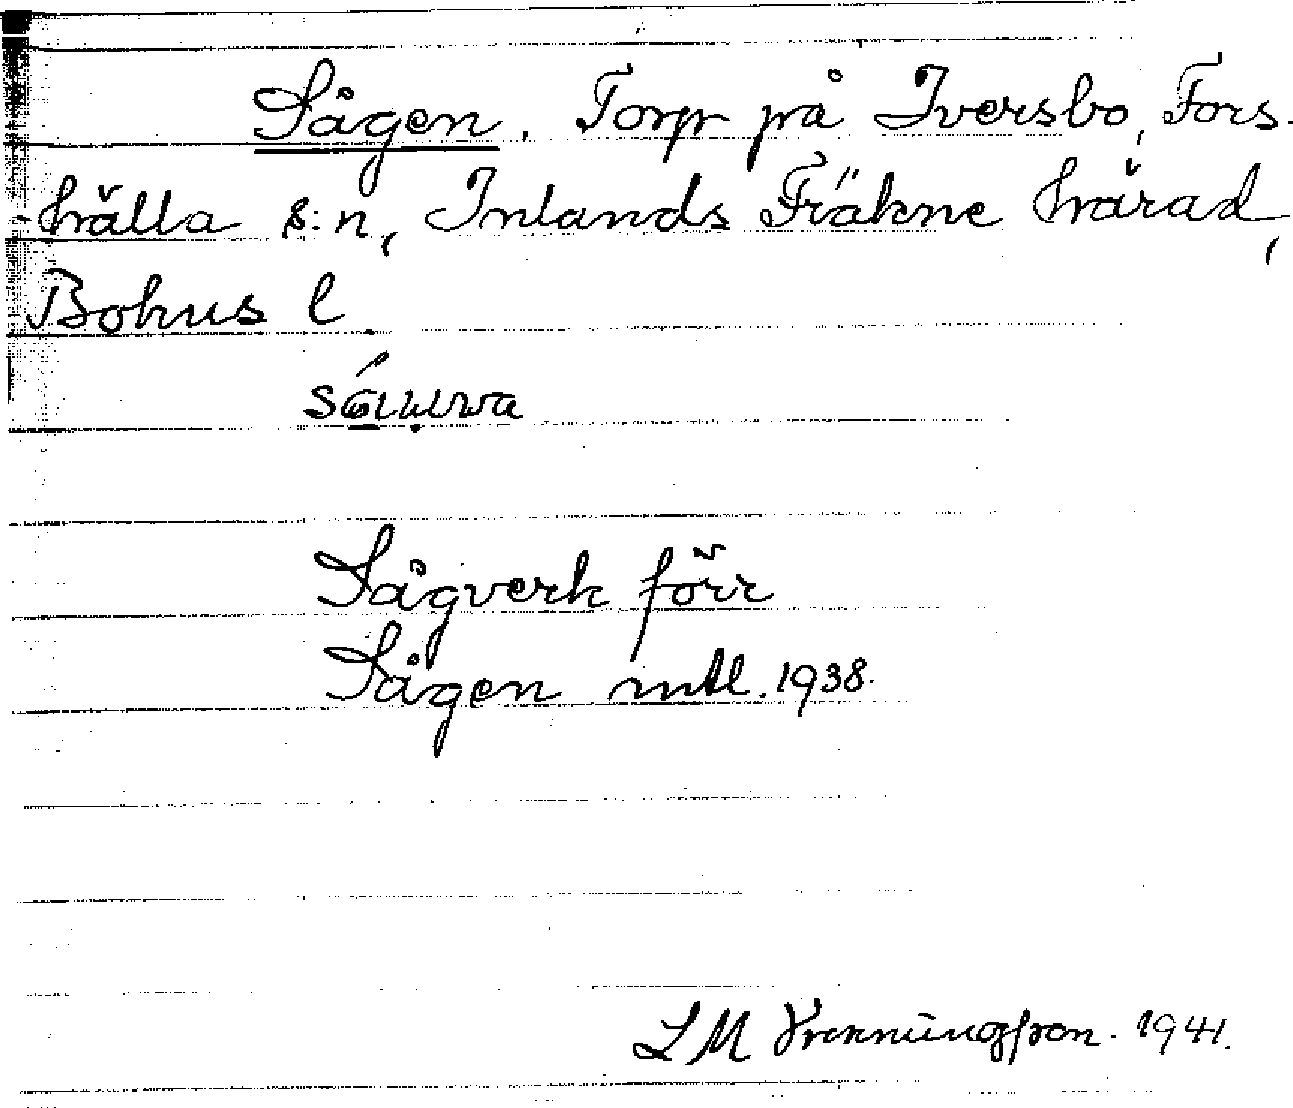 Sågen. Torp på Iversbo, Fors-
hälla s:n, Inlands Fräkne härad,
Bohus l
Sågverk förr
Sågen mtl. 1938.
L M 1941.